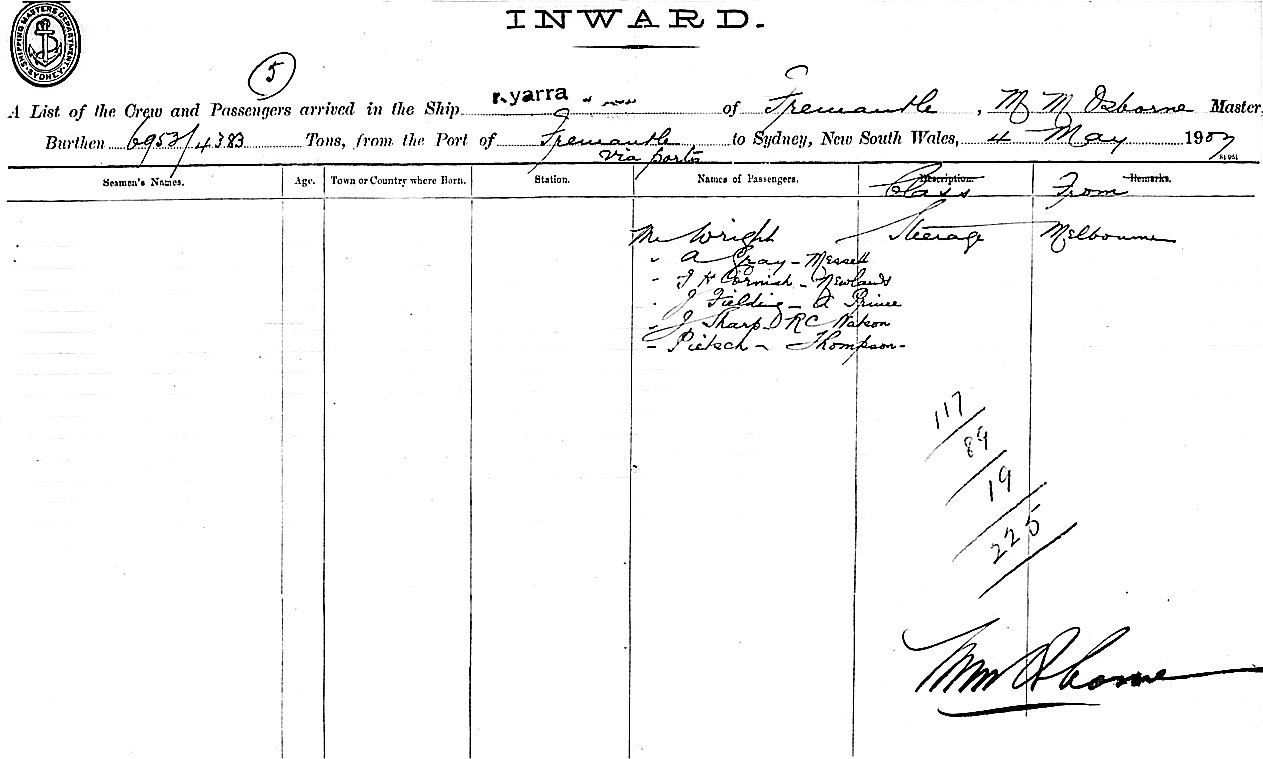 SHIPPING MASTER'S DEPARTMENT. SYDNEY.
INWARD.
5
A List of the Crew and Passengers arrived in the Ship yarra of Fremantle, M M Osborne Master,
Burthen 6953/4383 Tons, from the Port of Fremantle to Sydney, New South Wales, 4 May 1907
via ports
Seamen's Names. Age. Town or Country where Born. Station. Names of Passengers. Description. Class From Remarks.
Mr Wright Steerage Melbourne
" A Gray - Messett
" F H Cornish - Newlands
" J Fielding - A Prince
" J Sharp D R C Watson
" Pietsch - Thompson -
117
89
19
225
MM Osborne